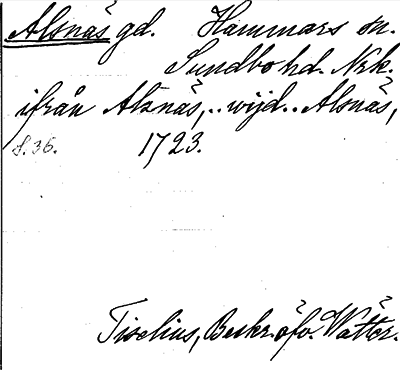 Alsnäs gd. Hammars sn.
Sundbo hd. Nrk.
ifrån Alznäs,.. wijd.. Alsnäs,
s. 36. 1723.
Tiselius, Beskr. öfv. Wätter.